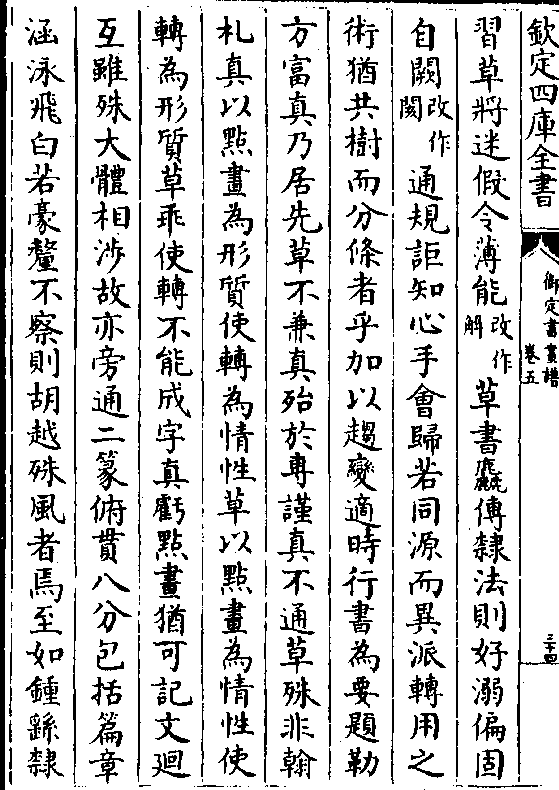 欽定四庫全書
御定書畫譜
卷五
三十四
習草將迷假令薄能改作解草書麤傅隸法則好溺偏固
自闕改作閡通規詎知心手會歸若同源而異派轉用之
術猶共樹而分條者乎加以趨變適時行書為要題勒
方富真乃居先草不兼真殆於專謹真不通草殊非翰
札真以點畫為形質使轉為情性草以點畫為情性使
轉為形質草乖使轉不能成字真虧點畫猶可記文廻
互雖殊大體相涉故亦旁通二篆俯貫八分包括篇章
涵泳飛白若豪釐不察則胡越殊風者焉至如鍾繇隸